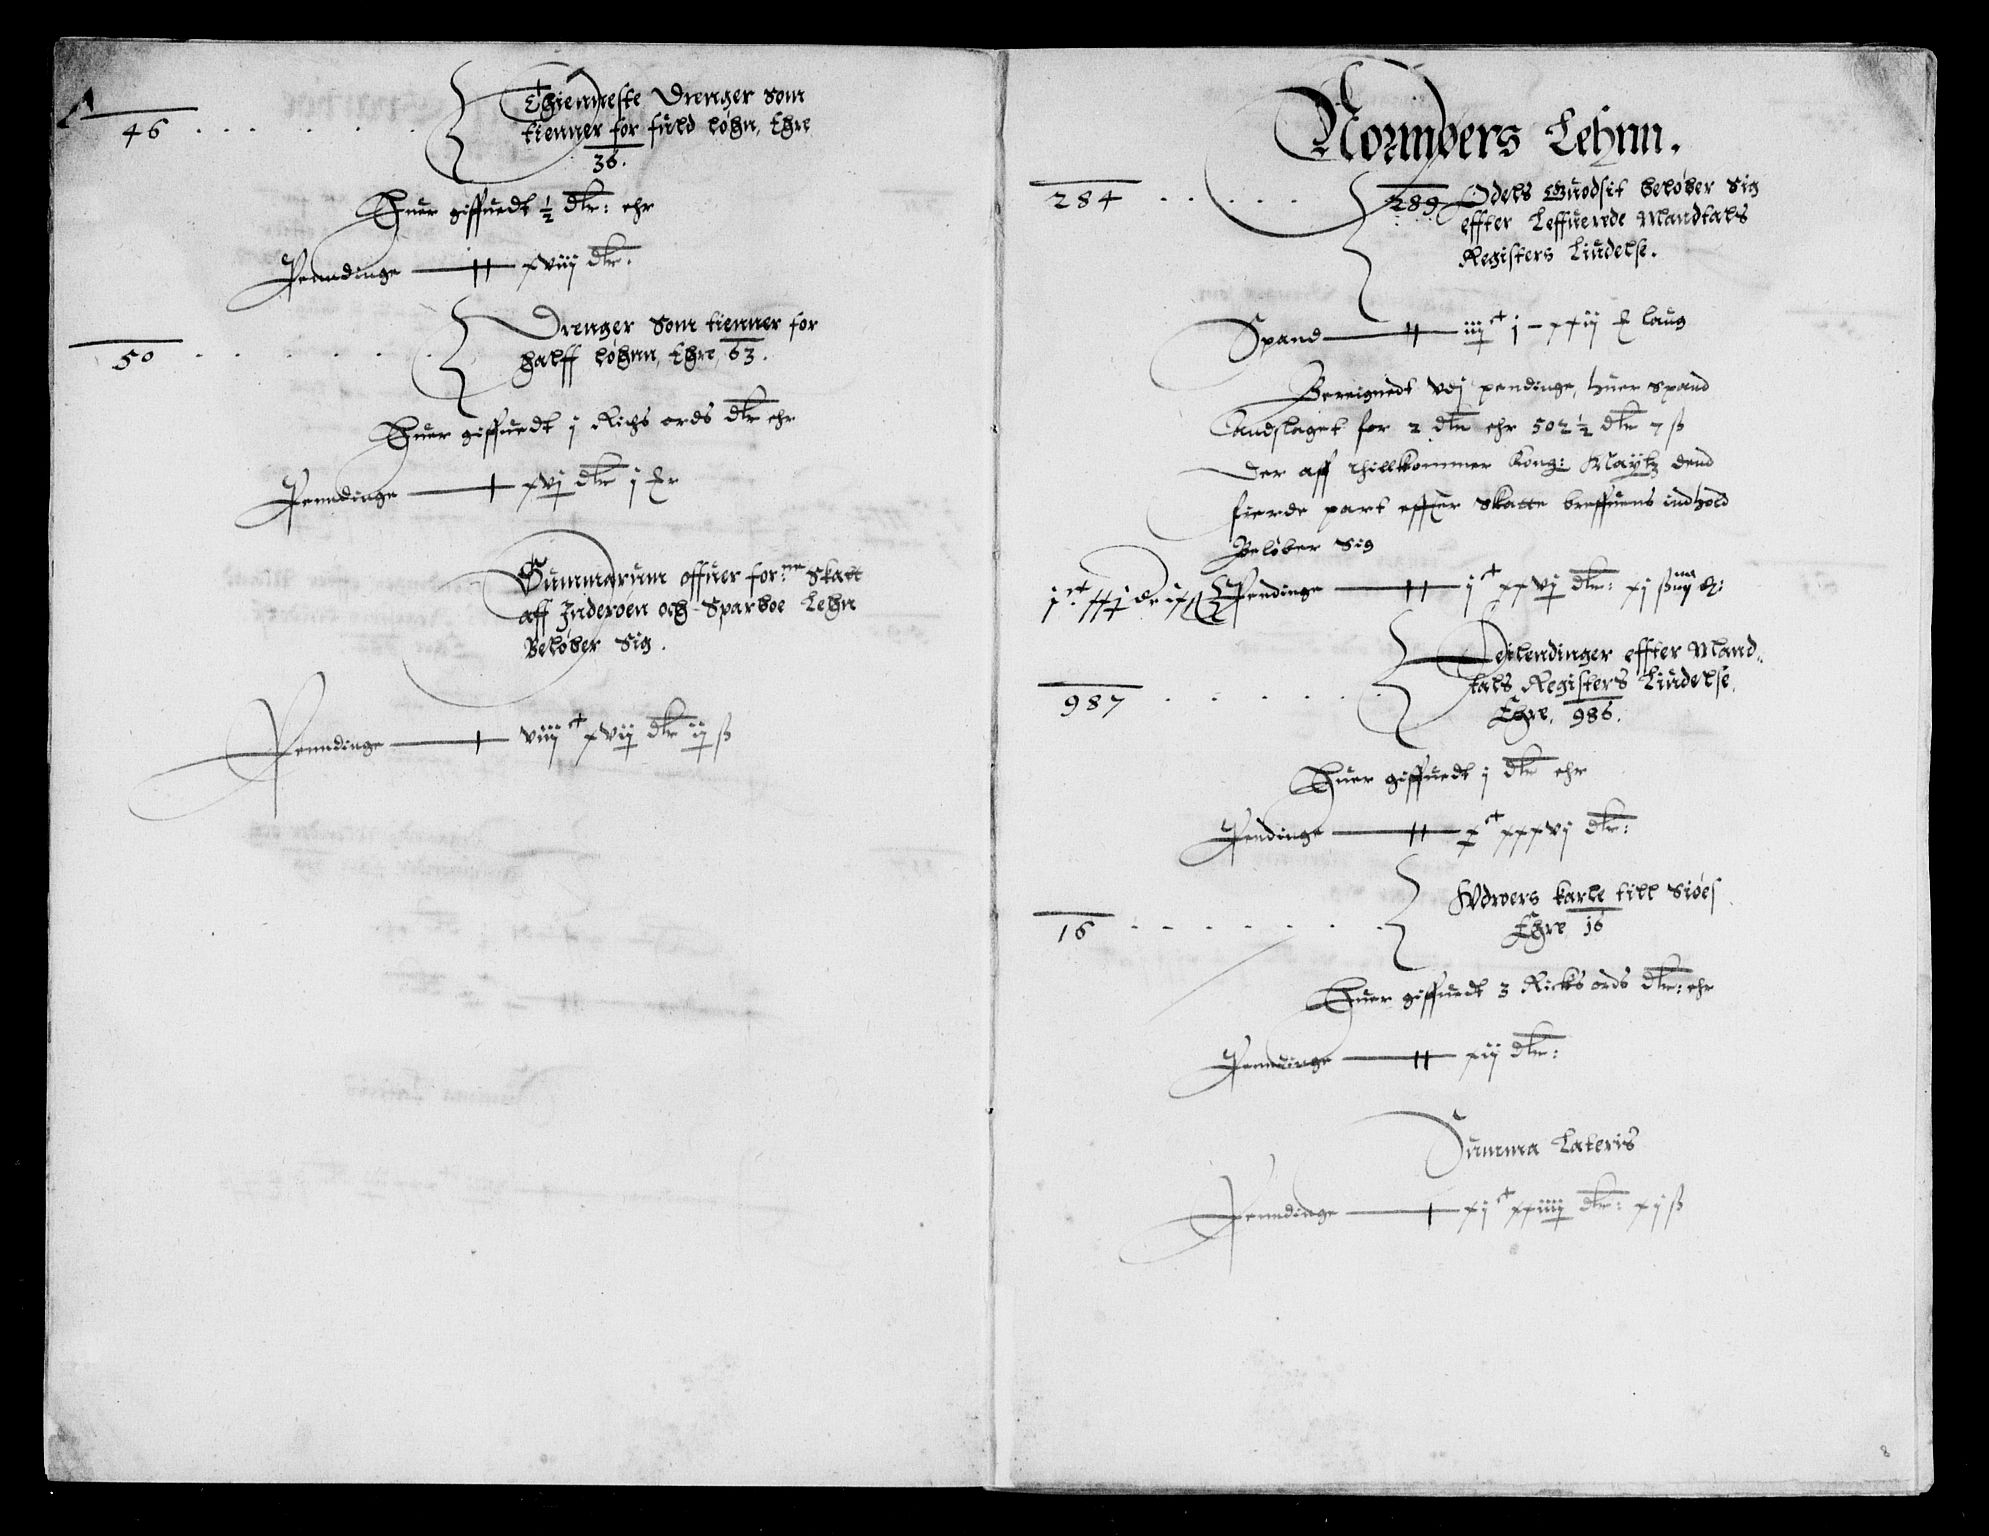 46 . . . . . . Thienneste Drenger Som
tienner for fuld løhn, Ehre
36.
Huer giffuedt ½ dlr: ehr
Penndinge xviij dlr.
50 . . . . . . Drenger Som tienner for
halff løhnn, Ehre, 63.
Huer giffuedt j Richs ordz dlr ehr
Penndinge xvj dlr j
Summarum offuer for:ne Skatt
aff Inderøen och Sparboe Lehn
Beløber Sig.
Penndinge viijct xvij dlr ij ß
Normøers Lehnn.
284 . . . . . 289 Odels Guodsit beløber Sig
effter Leffuerede Mandtals
Registers Liudelse.
Spand ijct j – xxij laug
Bereignedt vdj pendinge, huer Spand
Landslaget for 2 dlr ehr 502 ½ dlr 7 ß
Der aff thillkommer Kong: Maytz dend
fierde part effter Skatte breffuens indhold
Beløber Sig
Pendinge jct xxvj dlr: xj ß
987 . . . . . . Leilendinger effter Mand,,
tals Registers Liudelse,
Ehre, 986.
Huer giffuedt j dlr ehr
Pendinge xct xxxvj dlr:
16 . . . . . . . Vdroers karle till Siøes
Ehre 16
Huer giffuedt 3 Richs ordz dlr: ehr
Penndinge xij dlr:
Summa Lateris
Penndinge xjct xxiiij dlr: xj ß
8